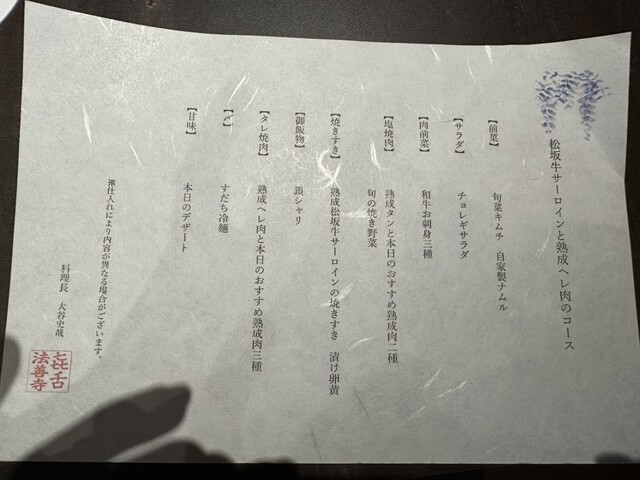 松坂牛サーロインと熟成ヘレ肉のコース
【前菜】 旬菜キムチ 自家製ナムル
【サラダ】 チョレギサラダ
【肉前菜】 和牛お刺身三種
【塩焼肉】 熟成タンと本日のおすすめ熟成肉二種
旬の焼き野菜
【焼きすき】 熟成松坂牛サーロインの焼きすき 漬け卵黄
【御飯物】 銀シャリ
【タレ焼肉】 熟成ヘレ肉と本日のおすすめ熟成肉三種
【〆】 すだち冷麺
【甘味】 本日のデザート
※仕入れにより内容が異なる場合がございます。
料理長 大谷史哉
㐂舌
法善寺